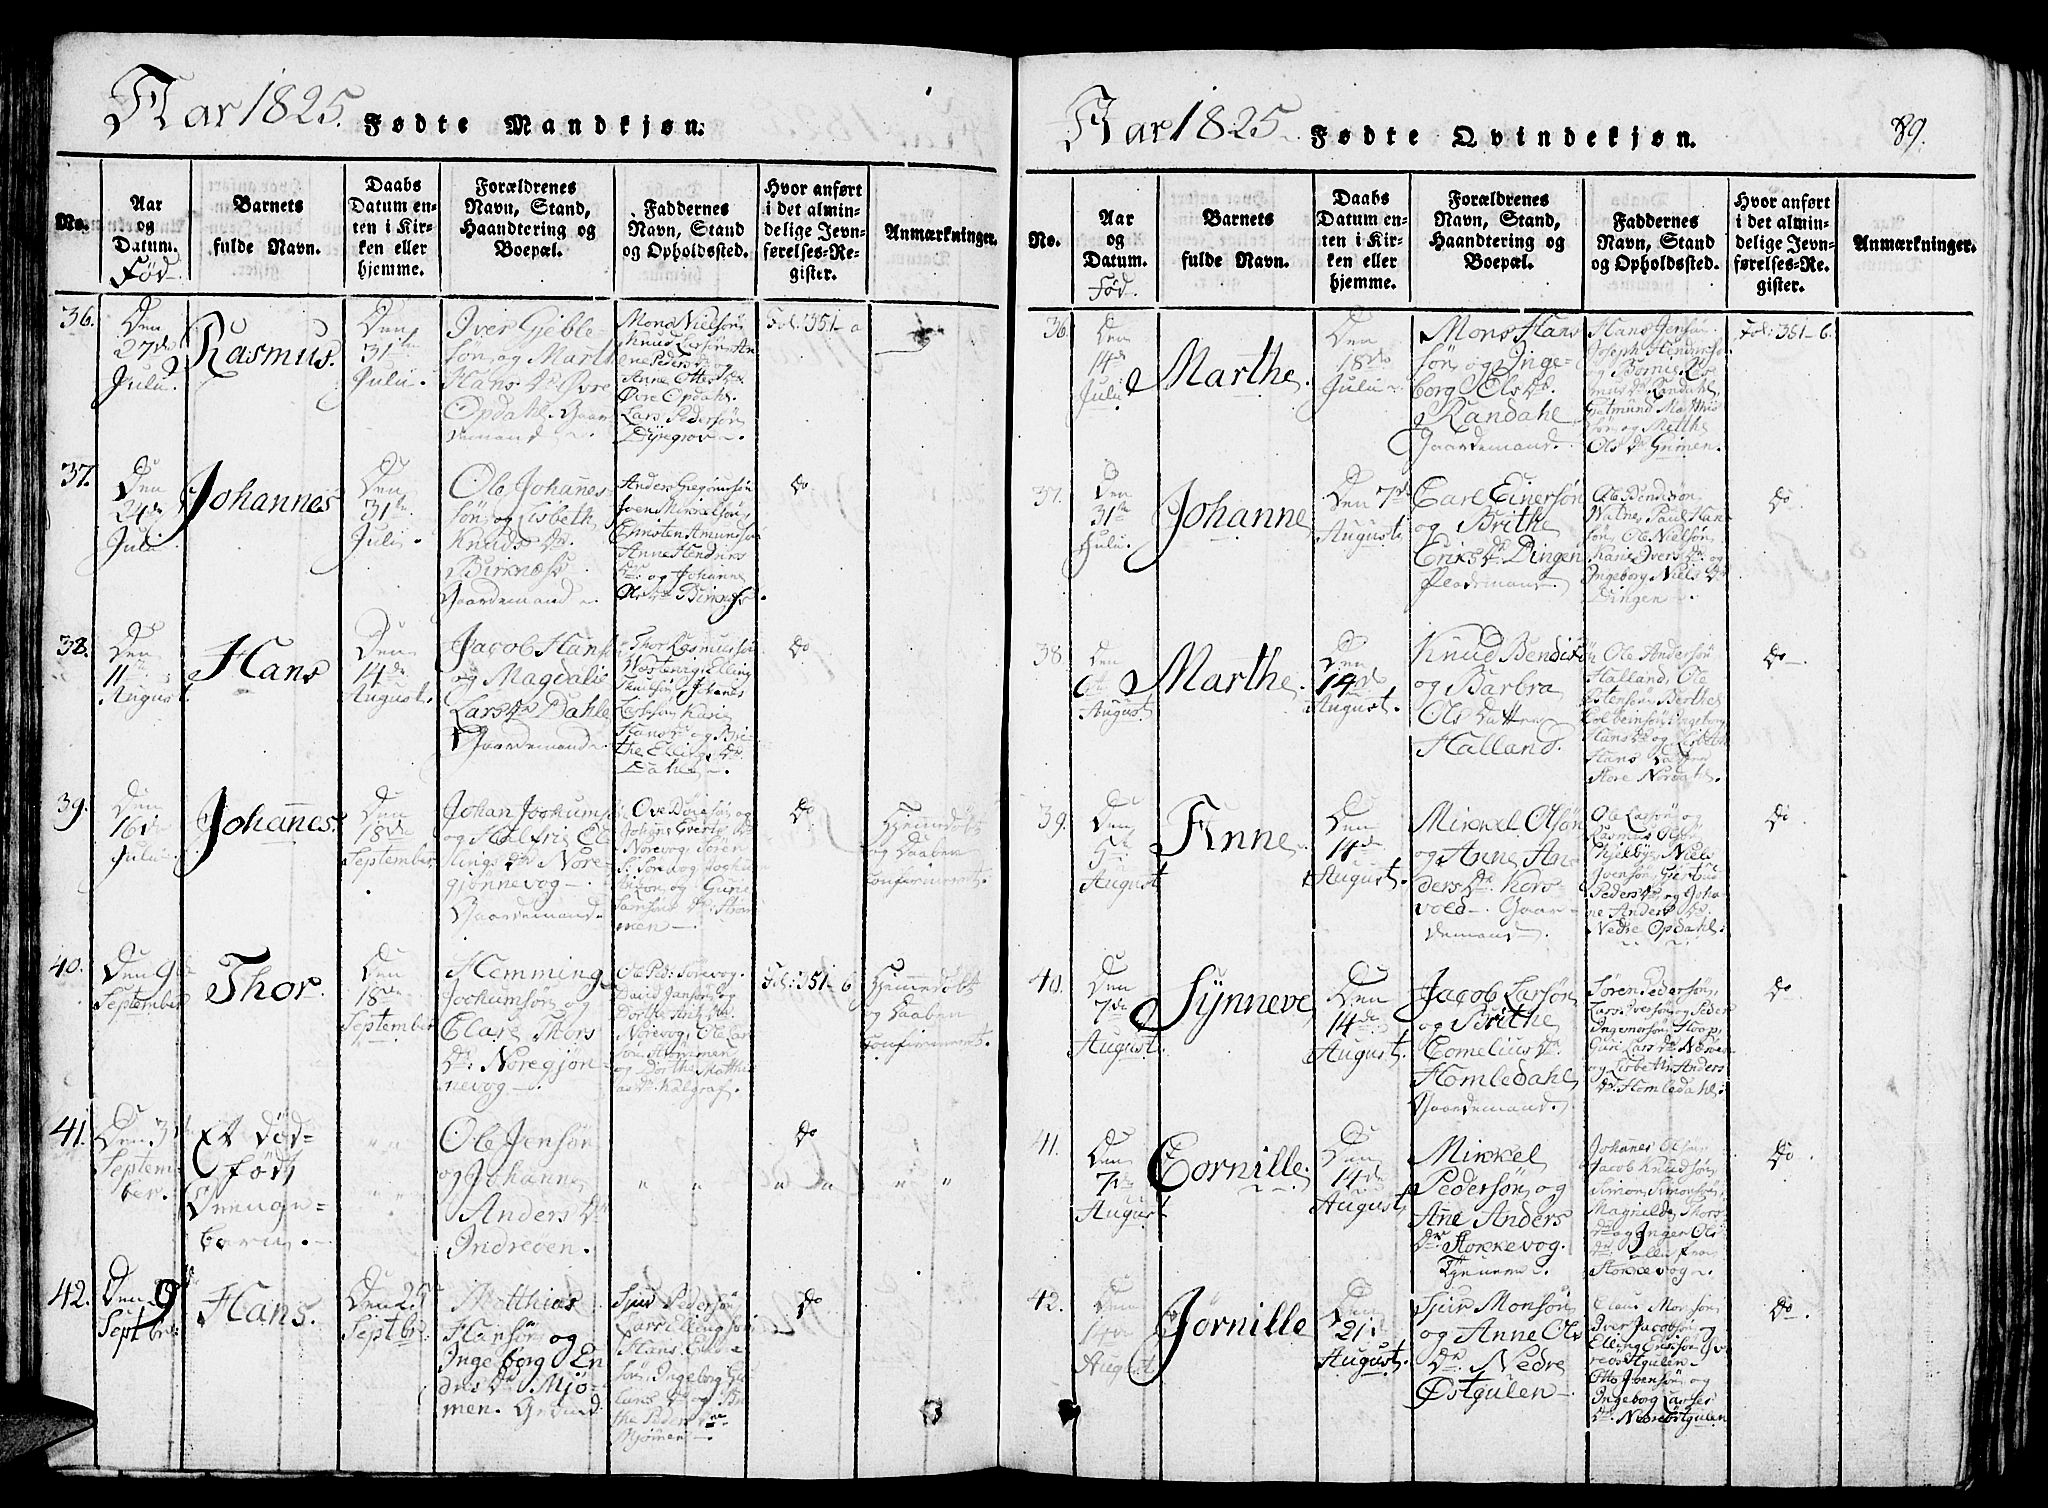 Aar 1825. Fødte Mandkjøn.
No.
Aar
og
Datum.
Fød.
Barnets
fulde Navn.
Daabs
Datum en-
ten i Kir-
ken eller
hjemme.
Forældrenes
Navn, Stand,
Haandtering og
Boepæl.
Faddernes
Navn, Stand
og Opholdssted.
Hvor anført
i det almin-
delige Jevn-
førelses-Re-
gister.
Anmærkninger.
36.
Den
27de
Julii.
Rasmus.
Den
31te
Julii.
Iver Gjeble-
søn og Marthe
Hans Dr Øvre
Opdahl. Gaar
demand.
Mons Nielsøn
Knud Larsøn, An
ne Peders Dr
Anne Ottes Dr
Øvre Opdahl
Lars Pedersøn
Fol: 351-a
37.
Den
24de
Julii.
Johannes
Den
31te
Julii.
Ole Johannes-
søn og Lisbeth
Knuds Dr.
Birknæs
Gaardemand.
Iven Mikkelsøn
Amundsø
Anne Hendriks
Dr. og Johanne
Ols Dr Birknæs.
Do
38.
Den
11te
August
Hans
Den
14de
August.
Jacob Hans
og Magdalis
Lars Dr Dahle
Gaardemand.
Thor Rasmussøn
Hans Dr og Bri-
the Ellings Dr
Dahle.
Do
39.
Den
16de
Julii
Johannes.
Den
18de
September
Johan Jochums
og Malfrie El
lings Dr Nore-
gjønnevog
Gaardemand.
Norevog, Søren
men.
Do
Hjemmedøbt
og Daaben
confirmeret.
40.
Den 9de
September
Thor.
Den
18de
September
Hemming
Jochumsøn og
Clare Mors
Dr: Noregjøn-
nevog
Ole Ped: Sørevog.
David Jansøn og
Norevog, Ole Lar
søn Strømmen
og Dorthe Matthi
as Dr Kalgraf.
Fol: 351-b
Hjemmedøbt
og Daaben
confirmeret.
41.
Den 3de
Septem-
ber.
Et død-
født
Drenge-
barn.
" "
" "
Ole Jensøn
og Johanne
Anders Dr
Indreøen.
" "
Do
" "
" "
42.
Den 9de
Septbr:
Hans.
Den 25
Septbr:
Matthias
Hansøn og
Ingeborg En
dres Dr Mjø-
men.
Sjur Pedersøn
Lars Ellingsøn
the Peders Dr
Mjømen.
Do
Aar 1825. Fødte Qvindekjøn. 89.
No.
Aar
og
Datum.
Fød.
Barnets
fulde Navn.
Daabs
Datum en-
ten i Kir-
ken eller
hjemme.
Forældrenes
Navn, Stand,
Haandtering og
Boepæl.
Faddernes
Navn, Stand
og Opholdssted.
Hvor anført
i det almin-
delige Jevn-
førelses-Re-
gister.
Anmærkninger.
36.
Den
14de
Julii
Marthe.
Den
18de
Julii
Mons Hans
søn og Inge-
borg Ols Dr.
Randahl
Gaardemand.
Hans Jensøn
Joseph Hendriksø
Ols Dr
Fol: 351-b.
37.
Den
31te
Julii.
Johanne
Den 7de
August
Carl Einersøn
og Brithe
Eriks Dr Dingen
Pladsmand
Ole Bendixøn
Witne, Paul Han
søn, Ole Nielsøn
Karie Ivers Dr og
Ingeborg Niels Dr
Dingen
Do
38.
Den
August
Marthe.
Den
14de
August.
Knud Bendixøn
og Barbra
Ols Datter
Halland.
Ole Andersøn
Halland, Ole
Hans Dr og Lisbeth
Hans Datter
Store Norvahl.
Do
39.
Den
August
Anne
Den
14de
August.
Mikkel Olsøn
og Anne An
ders Dr. Kors-
vold. Gaar-
demand.
Ole Larsøn og
Rasmus Olsøn
Hjelbye, Niels
Ivensøn, Giertrud
Peders Dr, og Joha-
ne Anders Dr.
Nedre Opdahl.
Do
40.
Den
7de
August.
Synneve
Den
14de
August.
Jacob Larsøn
og Brithe
Cornelius Dr.
Homledahl
Gaardemand.
Søren Pedersøn,
Lars Iversøn og Peder
Ingemorsøn, Hoap,
Guri Lars Dr
og Lisbeth Anders
Dr. Homledahl.
Do
41.
Den
7de
August
Cornille.
Den
14de
August
Mikkel
Pedersøn og
Anne Anders
Dr. Stokkevog.
Tjenere.
Johannes Olsøn
Jacob Knudsøn
Simon Simonsøn
Magnilde Thors
Dr og Inger Ols
Dr. alle fra
Stokkevog.
Do
42.
Den
14de
August
Jørnille
Den
21.
August.
Sjur Monsøn
og Anne Ols
Dr. Nedre
Østgulen
Claus Monsøn
Iver Jacobsøn og
Elling Eriksøn Øv
re Østgulen
Otto Ibensøn, og
Ingeborg Lasses
Dr. Nedre Østgulen
Do